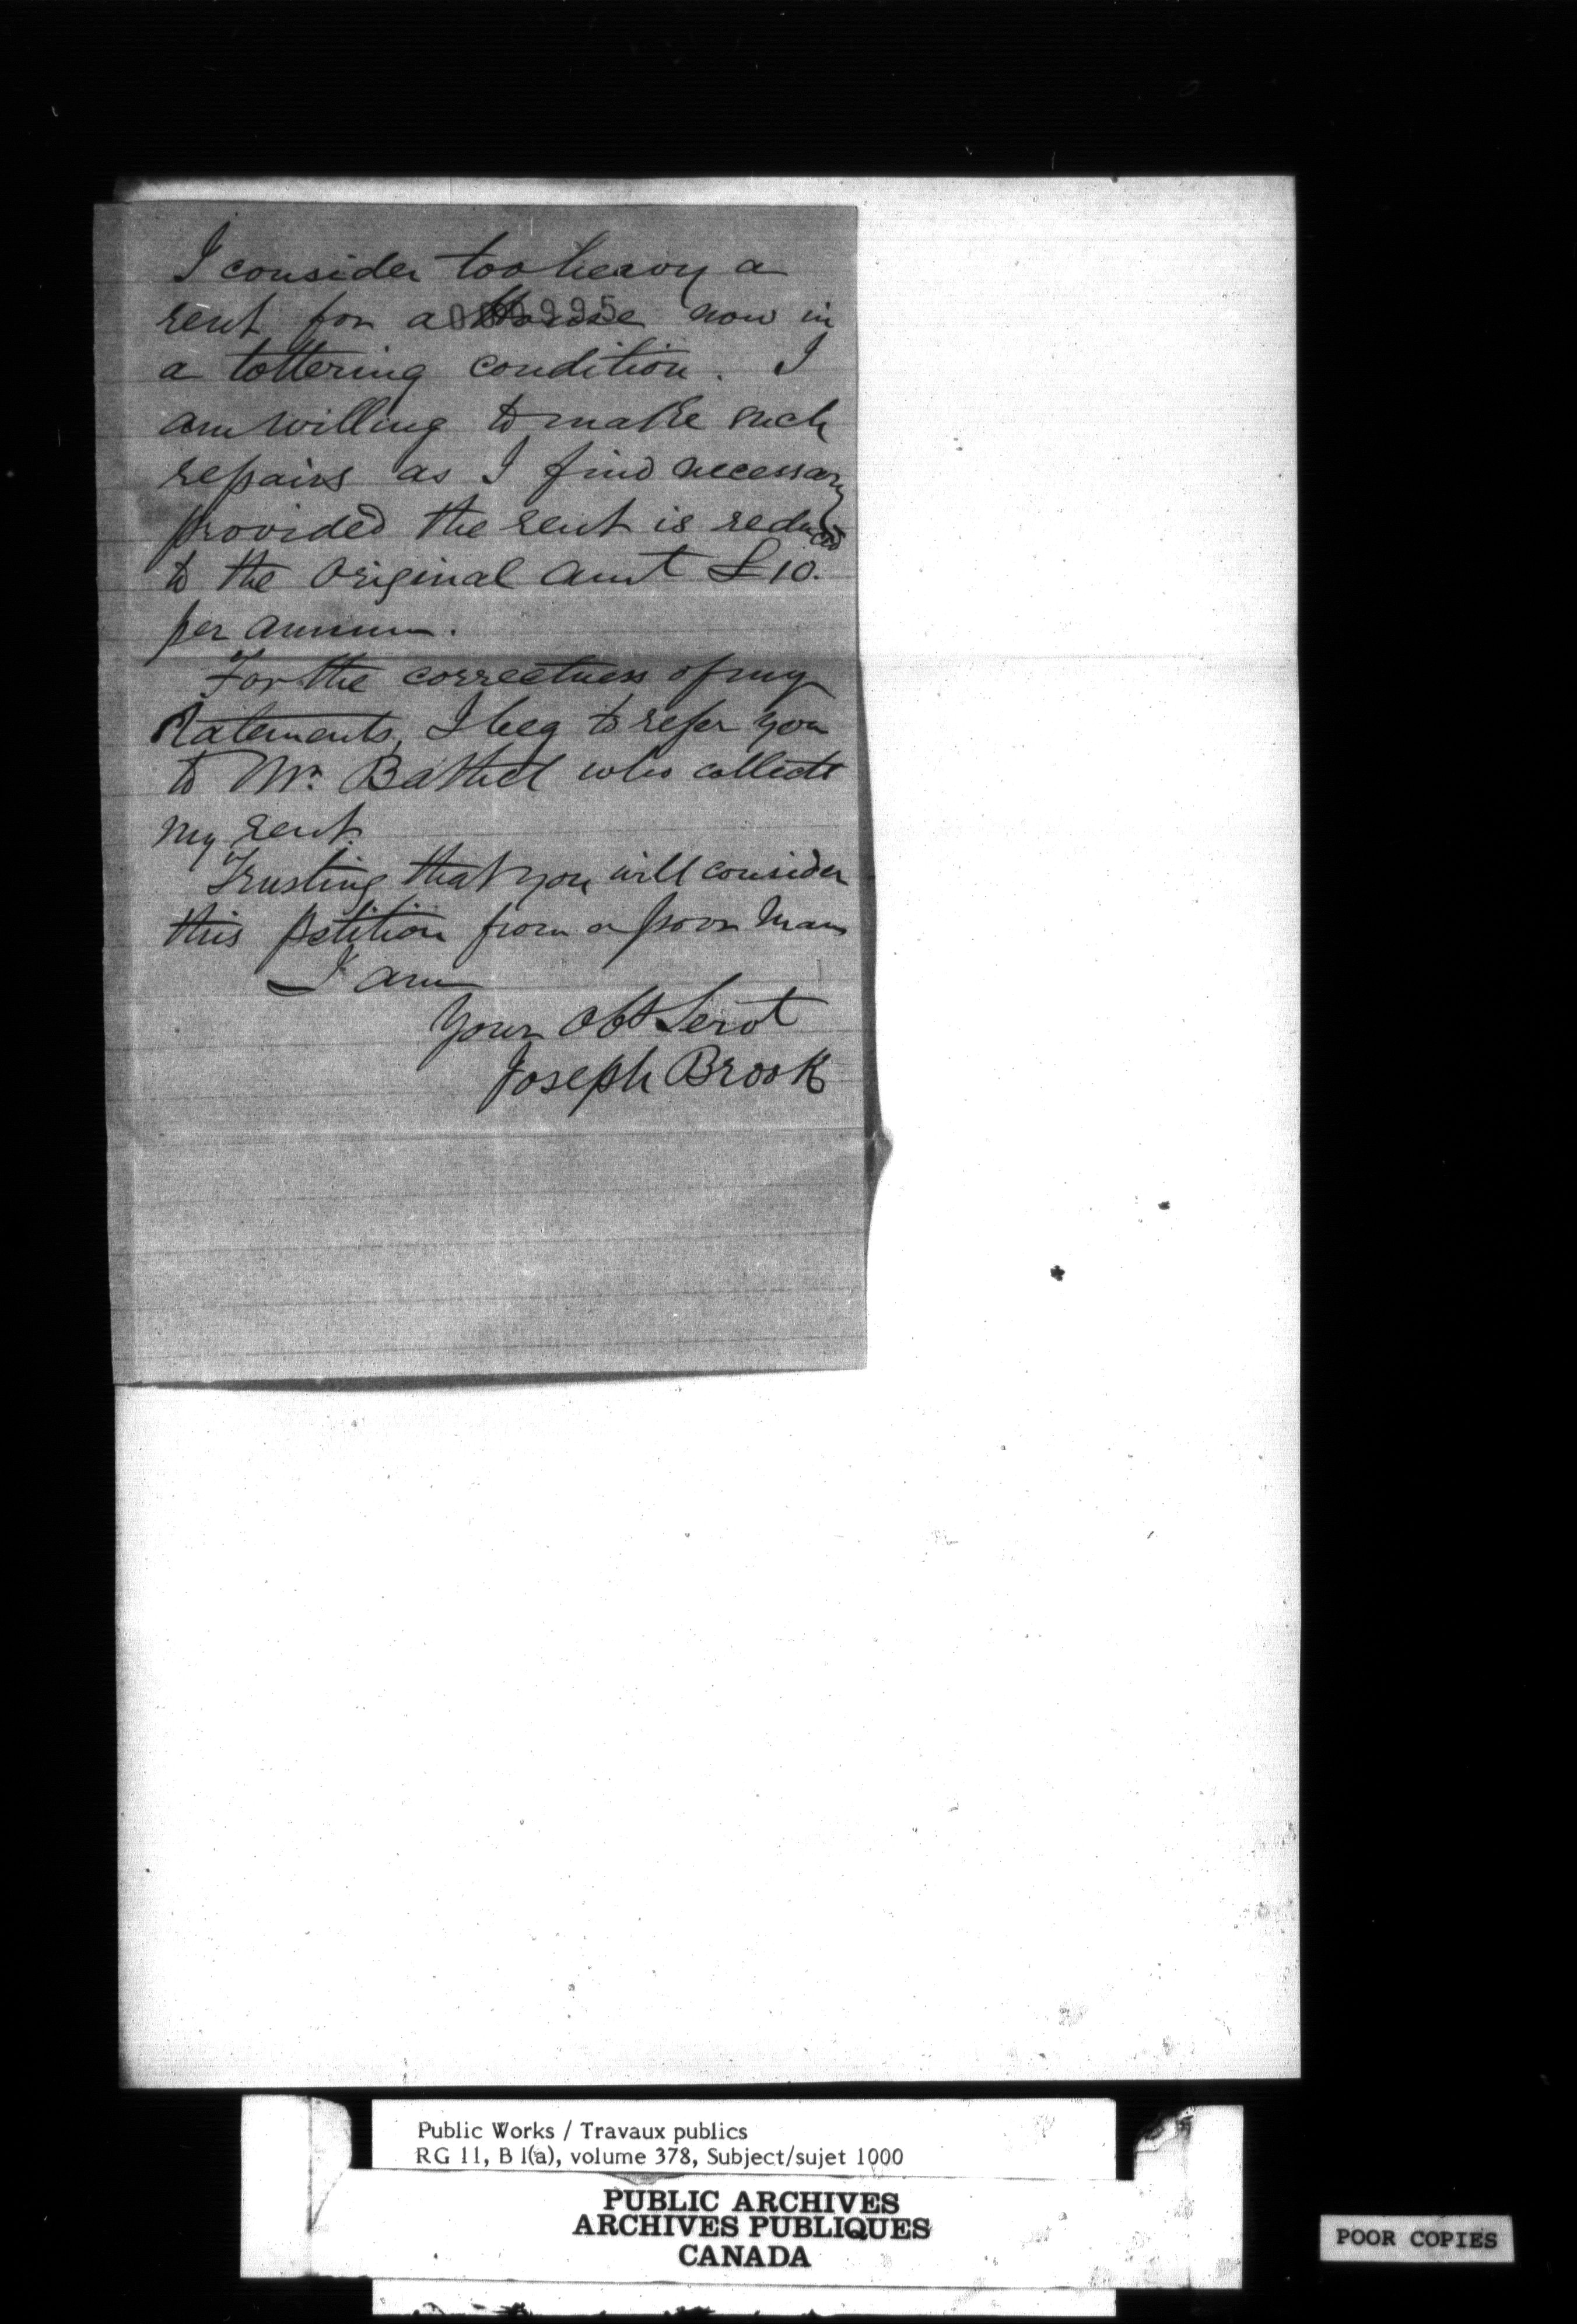 I consider too heavy a
rent for a House now in
a tottering condition. I
am willing to make such
repairs as I find necessary
provided the rent is reduced
to the Original amt £10.
per annum.
For the correctness of my
Statements, I beg to refer you
to Mr. who collects
my rent.
Trusting that you will consider
this petition from a poor Man
I am
Your Obt Servt
Joseph Brook
Public Works / Travaux publics
RG 11, B 1(a), volume 378, Subject/sujet 1000
PUBLIC ARCHIVES
ARCHIVES PUBLIQUES
CANADA
POOR COPIES